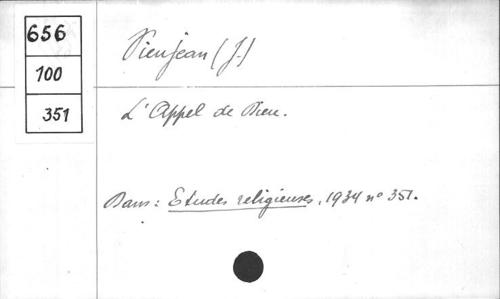 656
100
351
Vieujean (J.)
L'Appel de Dieu.
Dans : Etudes religieuses, 1934 n° 351.